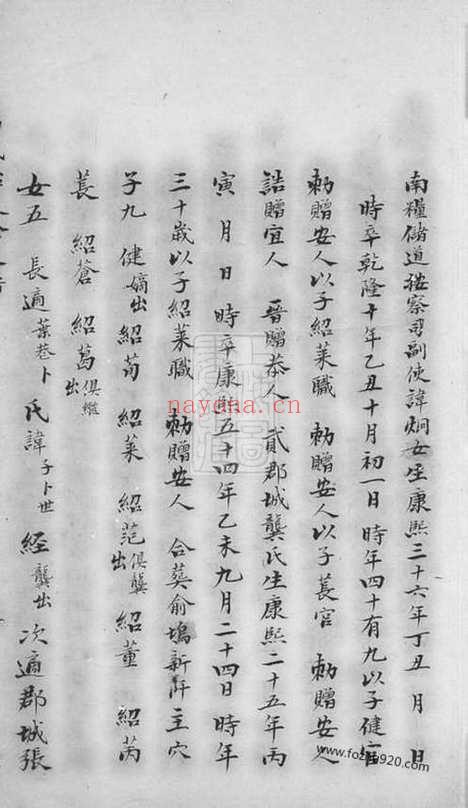 南糧儲道按察司副使諱炯女生康熙三十六年丁丑 月 日
時卒乾隆十年乙丑十月初一日 時年四十有九以子健官
勅贈安人以子紹萊職 勅贈安人以子萇官 勅贈安人
誥贈宜人 晉贈恭人 貳郡城龔氏生康熙二十五年丙
寅 月 日 時卒康熙五十四年乙未九月二十四日 時年
三十歲以子紹萊職 勅贈安人 合葬俞塢新阡主穴
子九 健嫡出 紹苟 紹萊 紹范俱龔出 紹董 紹芮
萇 紹蒼 紹葛俱繼出
女五 長適葉巷卜氏諱 子卜世經龔出 次適郡城張
nayona.cn
www.fozu920.com